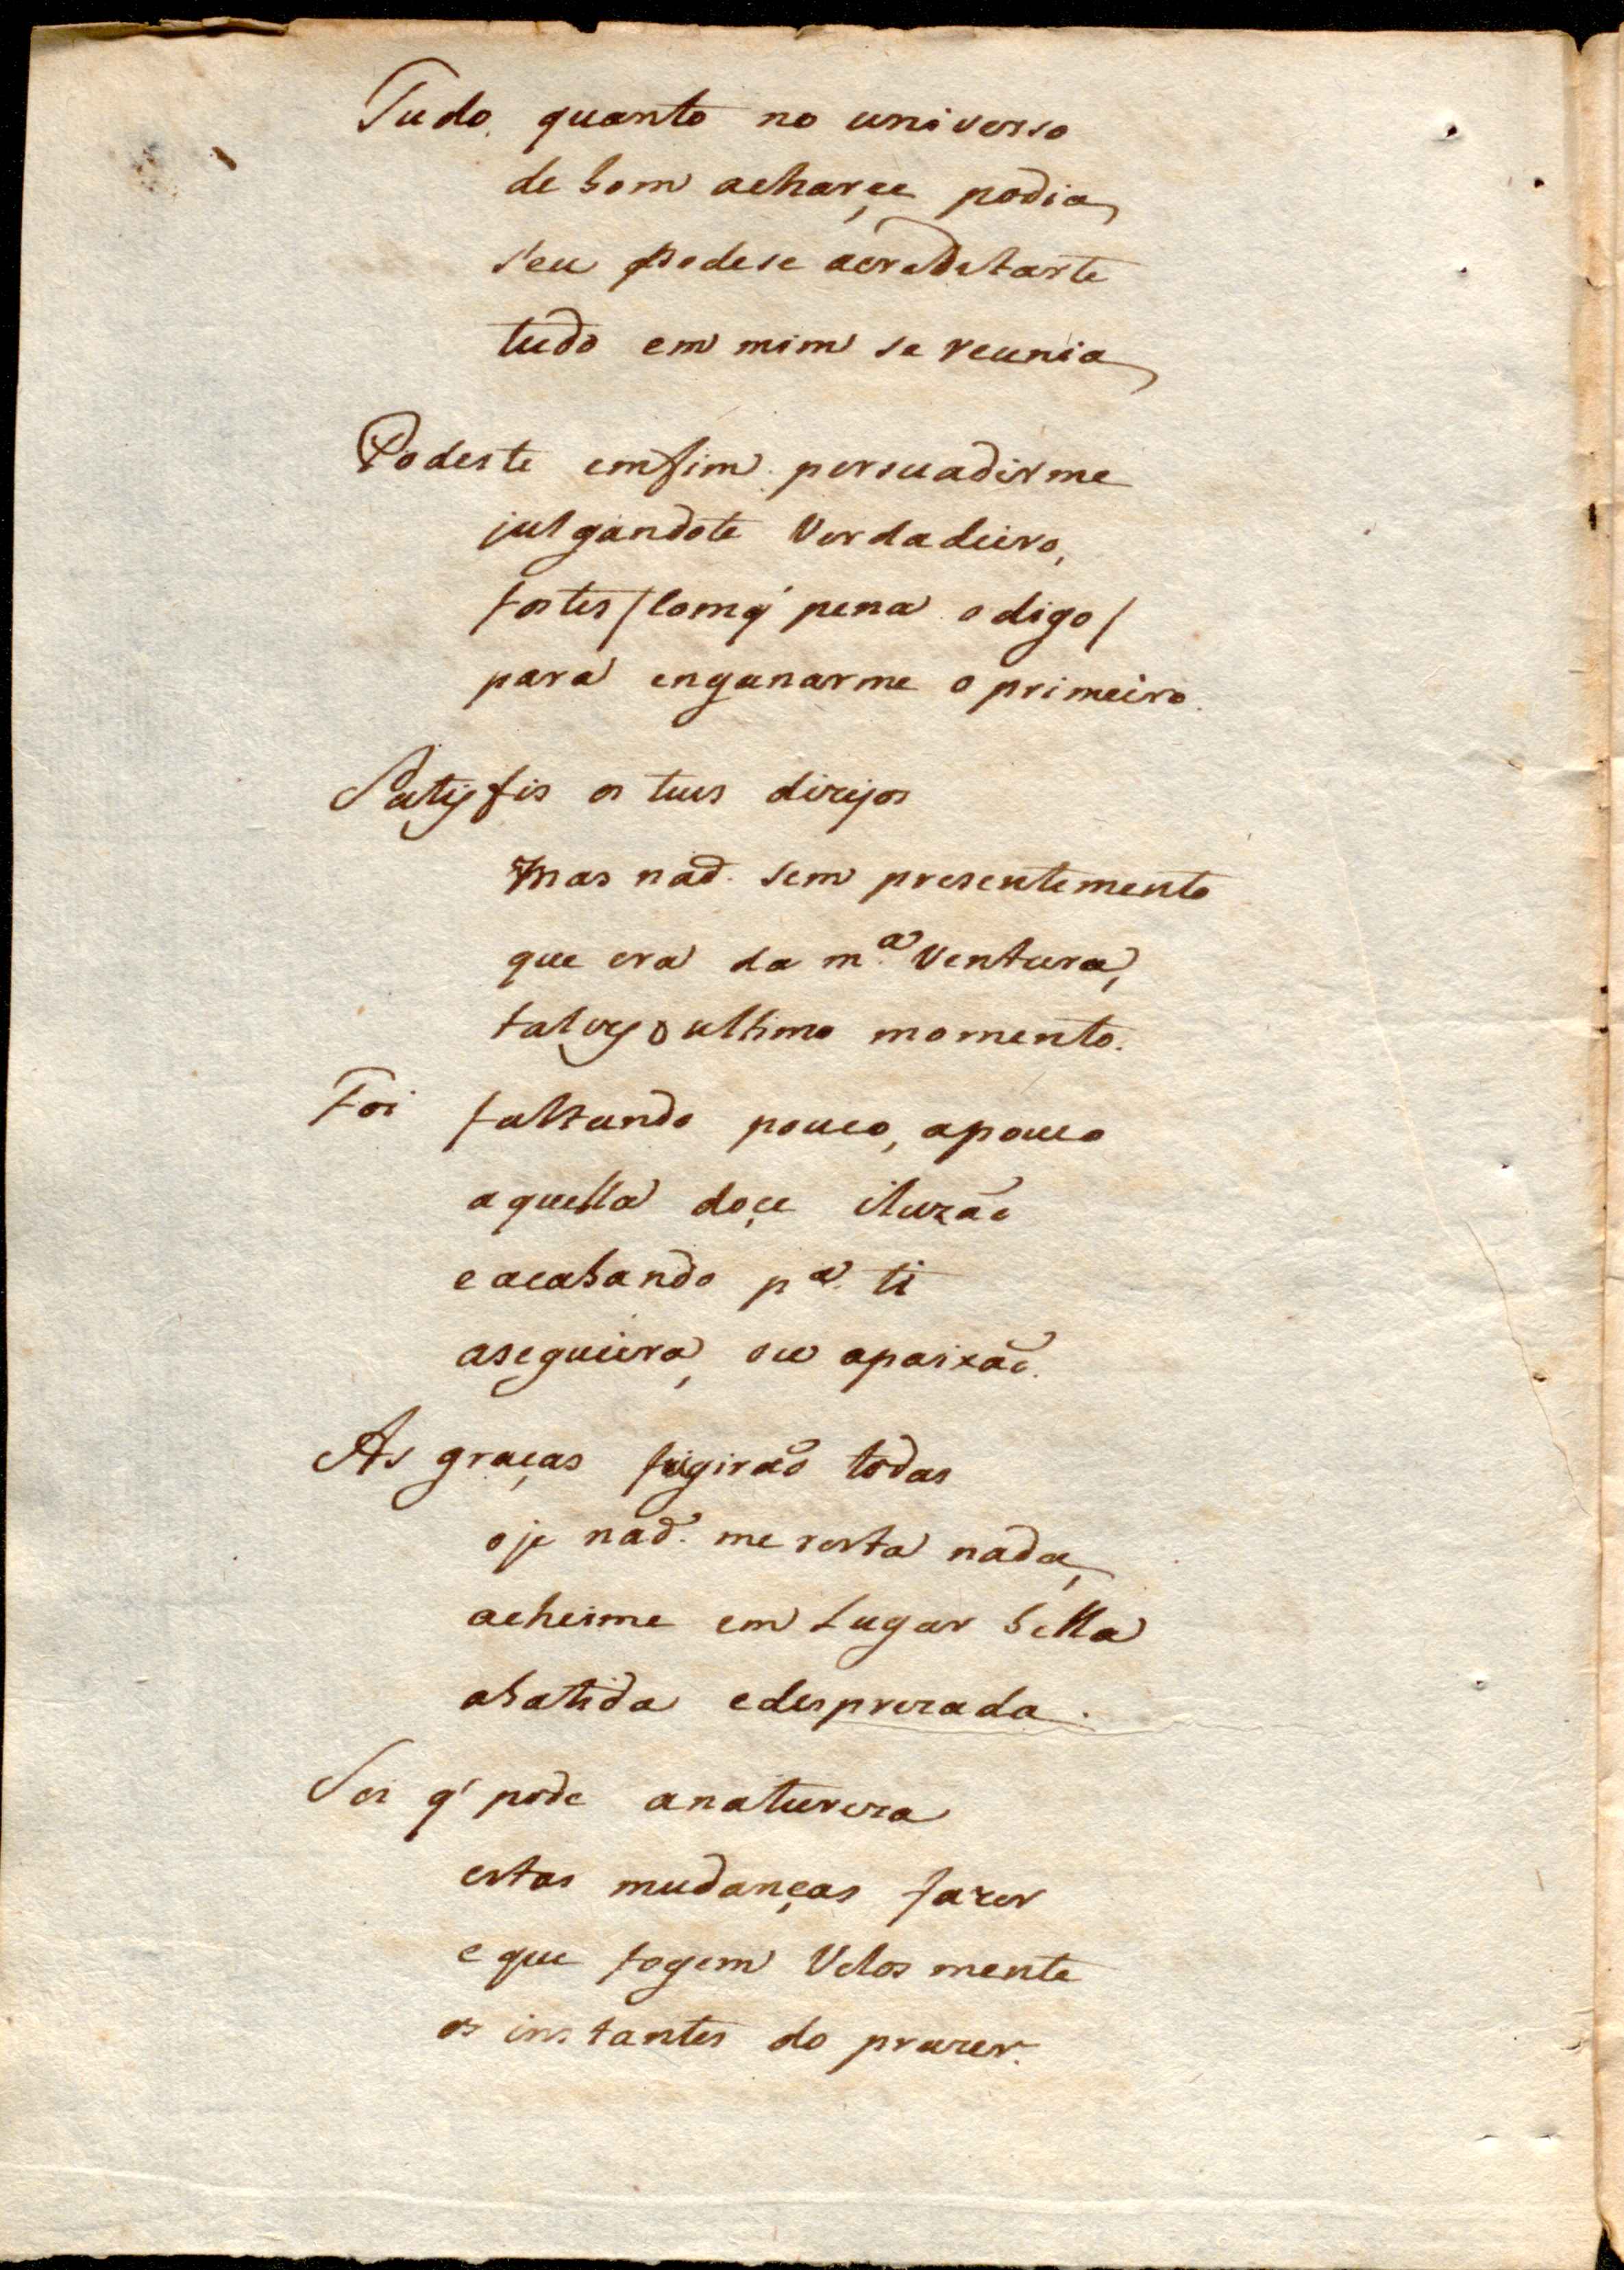 Tudo quanto no universo
de bom acharçe podia,
s'eu podese acreditarte
tudo em mim se reunia,
Podeste emfim persuadirme
julgandote Verdadeiro,
fostes /Com q' pena o digo/
para enganarme o primeiro.
Satisfis os teus dizejos
Mas naõ sem presentimento
que era da m.ª Ventura,
talvez o ultimo momento.
Foi faltando pouco, apouco
aquella doçe iluzaõ
e acabando p.ª ti
asegueira, ou apaixaõ.
As graças fugiraõ todas
oje naõ me resta nada,
acheime em Lugar bella
abatida edesprezada.
Sei q' pode anatureza
estas mudanças fazer
e que fogem Velos mente
os instantes do prazer.